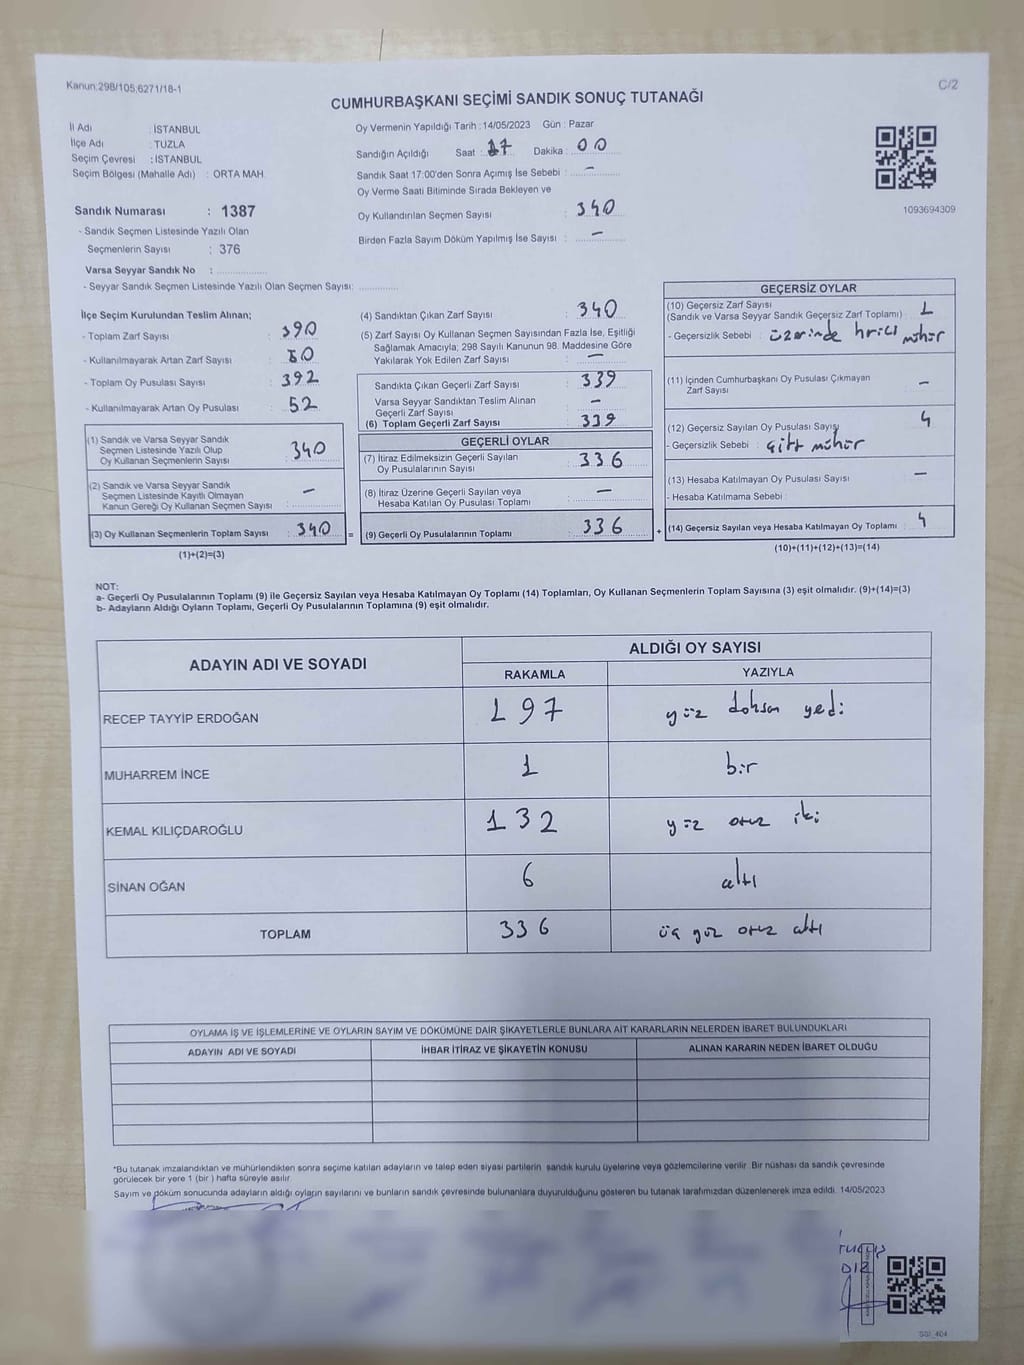 Kanun:298/105;6271/18-1
C/2
CUMHURBAŞKANI SEÇİMİ SANDIK SONUÇ TUTANAĞI
İl Adı : İSTANBUL
İlçe Adı : TUZLA
Seçim Çevresi : İSTANBUL
Seçim Bölgesi (Mahalle Adı) : ORTA MAH.
Sandık Numarası : 1387
- Sandık Seçmen Listesinde Yazılı Olan
Seçmenlerin Sayısı : 376
Varsa Seyyar Sandık No :
- Seyyar Sandık Seçmen Listesinde Yazılı Olan Seçmen Sayısı:
Oy Vermenin Yapıldığı Tarih : 14/05/2023 Gün : Pazar
Sandığın Açıldığı Saat : 17 Dakika : 00
Sandık Saat 17:00'den Sonra Açımış İse Sebebi : -
Oy Verme Saati Bitiminde Sırada Bekleyen ve
Oy Kullandırılan Seçmen Sayısı : 340
Birden Fazla Sayım Döküm Yapılmış İse Sayısı : -
1093694309
İlçe Seçim Kurulundan Teslim Alınan;
- Toplam Zarf Sayısı : 390
- Kullanılmayarak Artan Zarf Sayısı : 50
- Toplam Oy Pusulası Sayısı : 392
- Kullanılmayarak Artan Oy Pusulası : 52
(1) Sandık ve Varsa Seyyar Sandık
Seçmen Listesinde Yazılı Olup
Oy Kullanan Seçmenlerin Sayısı : 340
(2) Sandık ve Varsa Seyyar Sandık
Seçmen Listesinde Kayıtlı Olmayan
Kanun Gereği Oy Kullanan Seçmen Sayısı : -
(3) Oy Kullanan Seçmenlerin Toplam Sayısı : 340
(1)+(2)=(3)
(4) Sandıktan Çıkan Zarf Sayısı : 340
(5) Zarf Sayısı Oy Kullanan Seçmen Sayısından Fazla İse, Eşitliği
Sağlamak Amacıyla; 298 Sayılı Kanunun 98. Maddesine Göre
Yakılarak Yok Edilen Zarf Sayısı : -
Sandıkta Çıkan Geçerli Zarf Sayısı : 339
Varsa Seyyar Sandıktan Teslim Alınan
Geçerli Zarf Sayısı : -
(6) Toplam Geçerli Zarf Sayısı : 339
GEÇERLİ OYLAR
(7) İtiraz Edilmeksizin Geçerli Sayılan
Oy Pusulalarının Sayısı : 336
(8) İtiraz Üzerine Geçerli Sayılan veya
Hesaba Katılan Oy Pusulası Toplamı : -
= (9) Geçerli Oy Pusulalarının Toplamı : 336
GEÇERSİZ OYLAR
(10) Geçersiz Zarf Sayısı
(Sandık ve Varsa Seyyar Sandık Geçersiz Zarf Toplamı) : 1
- Geçersizlik Sebebi : üzerinde hrici mühür
(11) İçinden Cumhurbaşkanı Oy Pusulası Çıkmayan
Zarf Sayısı -
(12) Geçersiz Sayılan Oy Pusulası Sayısı 4
- Geçersizlik Sebebi : çift mühür
(13) Hesaba Katılmayan Oy Pusulası Sayısı : -
- Hesaba Katılmama Sebebi :
+ (14) Geçersiz Sayılan veya Hesaba Katılmayan Oy Toplamı : 4
(10)+(11)+(12)+(13)=(14)
NOT:
a- Geçerli Oy Pusulalarının Toplamı (9) ile Geçersiz Sayılan veya Hesaba Katılmayan Oy Toplamı (14) Toplamları, Oy Kullanan Seçmenlerin Toplam Sayısına (3) eşit olmalıdır. (9)+(14)=(3)
b- Adayların Aldığı Oyların Toplamı, Geçerli Oy Pusulalarının Toplamına (9) eşit olmalıdır.
ADAYIN ADI VE SOYADI ALDIĞI OY SAYISI
RAKAMLA YAZIYLA
RECEP TAYYİP ERDOĞAN 197 yüz doksan yedi
MUHARREM İNCE 1 bir
KEMAL KILIÇDAROĞLU 132 yüz otuz iki
SİNAN OĞAN 6 altı
TOPLAM 336 üç yüz otuz altı
OYLAMA İŞ VE İŞLEMLERİNE VE OYLARIN SAYIM VE DÖKÜMÜNE DAİR ŞİKAYETLERLE BUNLARA AİT KARARLARIN NELERDEN İBARET BULUNDUKLARI
ADAYIN ADI VE SOYADI İHBAR İTİRAZ VE ŞİKAYETİN KONUSU ALINAN KARARIN NEDEN İBARET OLDUĞU
*Bu tutanak imzalandıktan ve mühürlendikten sonra seçime katılan adayların ve talep eden siyasi partilerin sandık kurulu üyelerine veya gözlemcilerine verilir. Bir nüshası da sandık çevresinde
görülecek bir yere 1 (bir) hafta süreyle asılır.
Sayım ve döküm sonucunda adayların aldığı oyların sayılarını ve bunların sandık çevresinde bulunanlara duyurulduğunu gösteren bu tutanak tarafımızdan düzenlenerek imza edildi. 14/05/2023